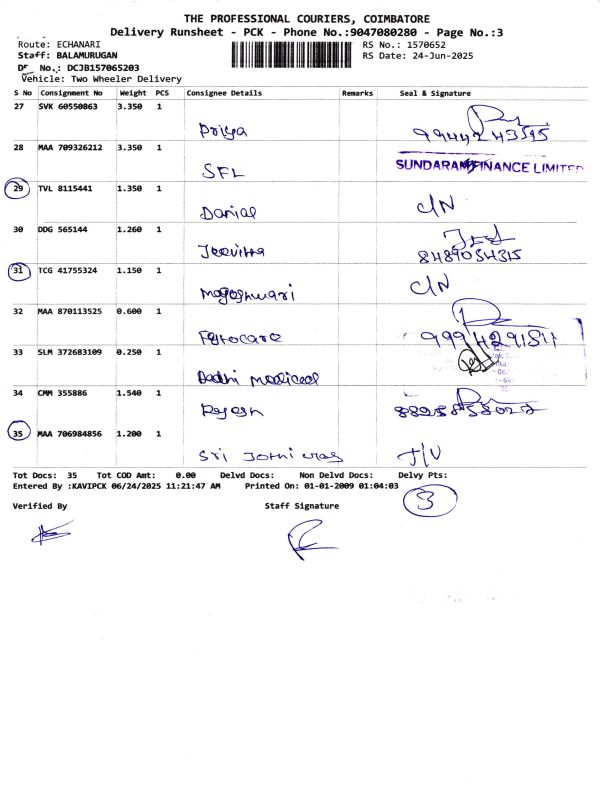 THE PROFESSIONAL COURIERS, COIMBATORE
Delivery Runsheet - PCK - Phone No.:9047080280 - Page No.:3
Route: ECHANARI RS No.: 1570652
Staff: BALAMURUGAN RS Date: 24-Jun-2025
DF No.: DCJB157065203
Vehicle: Two Wheeler Delivery
S No Consignment No Weight PCS Consignee Details Remarks Seal & Signature
27 SVK 60550863 3.350 1
Priya 9944243595
28 MAA 709326212 3.350 1
SFL SUNDARAM FINANCE LIMITED
29 TVL 8115441 1.350 1
Danial C/N
30 DDG 565144 1.260 1
Jeevitha 8489034315
31 TCG 41755324 1.150 1
Mageshwari C/N
32 MAA 870113525 0.600 1
9994291511
33 SLM 372683109 0.250 1
Medical
34 CMM 355886 1.540 1
Rajesh
35 MAA 706984856 1.200 1
Sri Jothi
Tot Docs: 35 Tot COD Amt: 0.00 Delvd Docs: Non Delvd Docs: Delvy Pts:
Entered By :KAVIPCK 06/24/2025 11:21:47 AM Printed On: 01-01-2009 01:04:03
3
Verified By Staff Signature